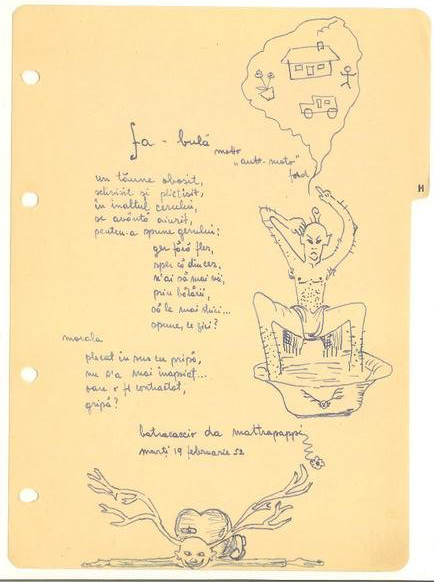 fa - bulă
motto
"auto-moto"
ford
un tăune obosit,
și plictisit,
în înaltul cerului,
se avântă aiurit,
pentru-a spune gerului:
ger fără fles,
n'ai să mai vii,
prin bălării,
să le mai știri...
spune, ce zici?
morala
plecat în sus cu pripă,
nu s'a mai înapoiat...
oare o fi contractat,
gripă?
batracaccio da mattrapappi
marți 19 februarie 52
H